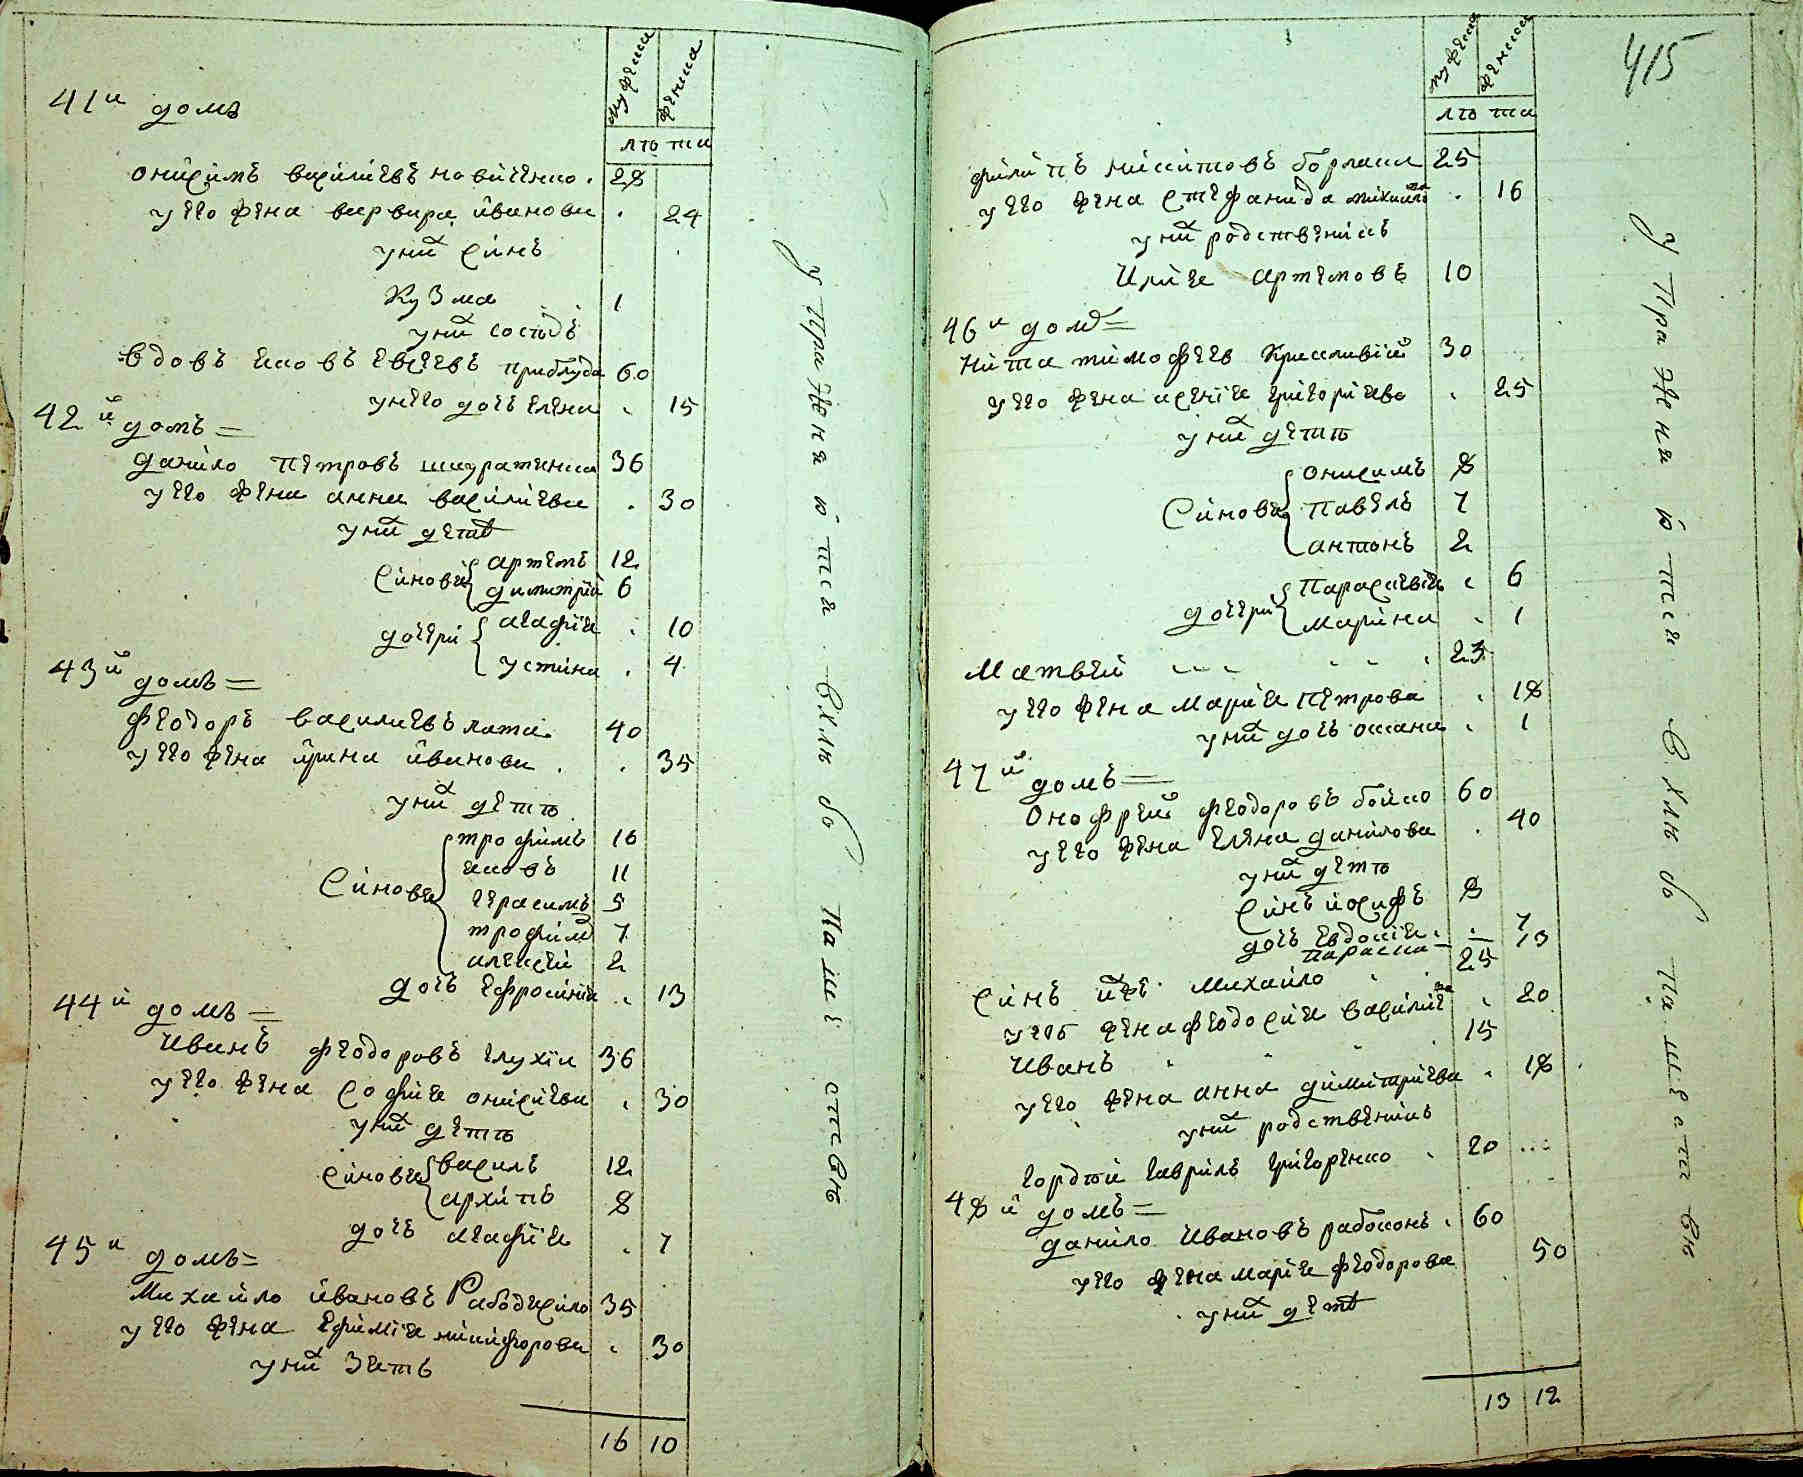 мужска
женска
лѣта
41й домъ
онисимъ василіевъ новиченко . 28
у его жена варвара иванова . 24
у них синъ
Кузма 1
у них сосѣдъ
вдовъ яковъ евсѣевъ приблуда 60
у него дочъ елена . 15
42й домъ =
данило петровъ шкуратенко 36
у его жена анна василіева . 30
у них дѣти
Синовя артемъ 12
димитрій 6
дочери агафія . 10
устина . 4
43й домъ =
феодоръ василіевъ лата 40
у его жена ирина иванова . 35
у них дѣти
Синовя трофимъ 16
яковъ 11
герасимъ 5
трофимъ 7
алексѣй 2
дочъ ефросинія . 13
44й домъ =
иванъ феодоровъ глухій 36
у его жена софія онисіева . 30
у них дѣти
Синовя василь 12
архипъ 8
дочъ агафія . 7
45й домъ =
михайло ивановъ Рабодзѣйло 35
у его жена ефимія никифорова . 30
у них зять
16 10
у пра жена ю тса
вхли бо
па ше стивъ
415
мужска
женска
лѣта
филипъ никитовъ борлак 25
у его жена стефанида михайлова . 16
у них родственикъ
илія артемовъ 10
46й домъ =
никита тимофѣевъ красливій 30
у его жена ксенія григоріева . 25
у них дѣти
Синовя онисимъ 8
павелъ 7
антонъ 2
дочери параскевія . 6
марина . 1
матвѣй 23
у его жена марія петрова . 18
у них дочъ оксана . 1
47й домъ =
онофрей феодоровъ бойко 60
у его жена елена данилова . 40
у них дѣти
синъ йосифъ 8
дочъ евдокія . 7
параска – 13
синъ их же михайло 25
у его жена феодосія василіева . 20
иванъ 15
у его жена анна димитріева . 18
у них родственикъ
гордѣй гаврилъ григоренко . 20 ...
48й домъ =
данило ивановъ рабоконъ . 60
у его жена марія феодорова 50
у них дѣти
13 12